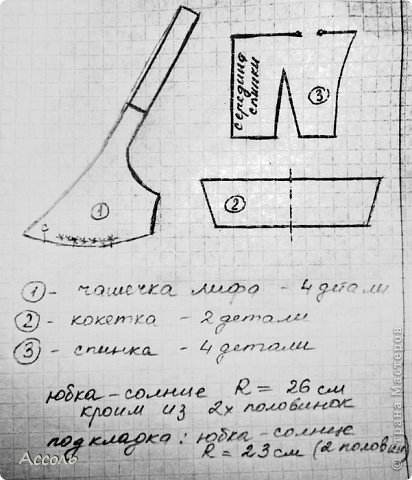 середина
спинки
3
1
2
1 - чашечка лифа - 4 детали
2 - кокетка - 2 детали
3 - спинка - 4 детали
юбка-солнце R = 26 см
кроим из 2х половинок
подкладка: юбка-солнце
R = 23 см (2 половин
Ассоль
© Страна Мастеров